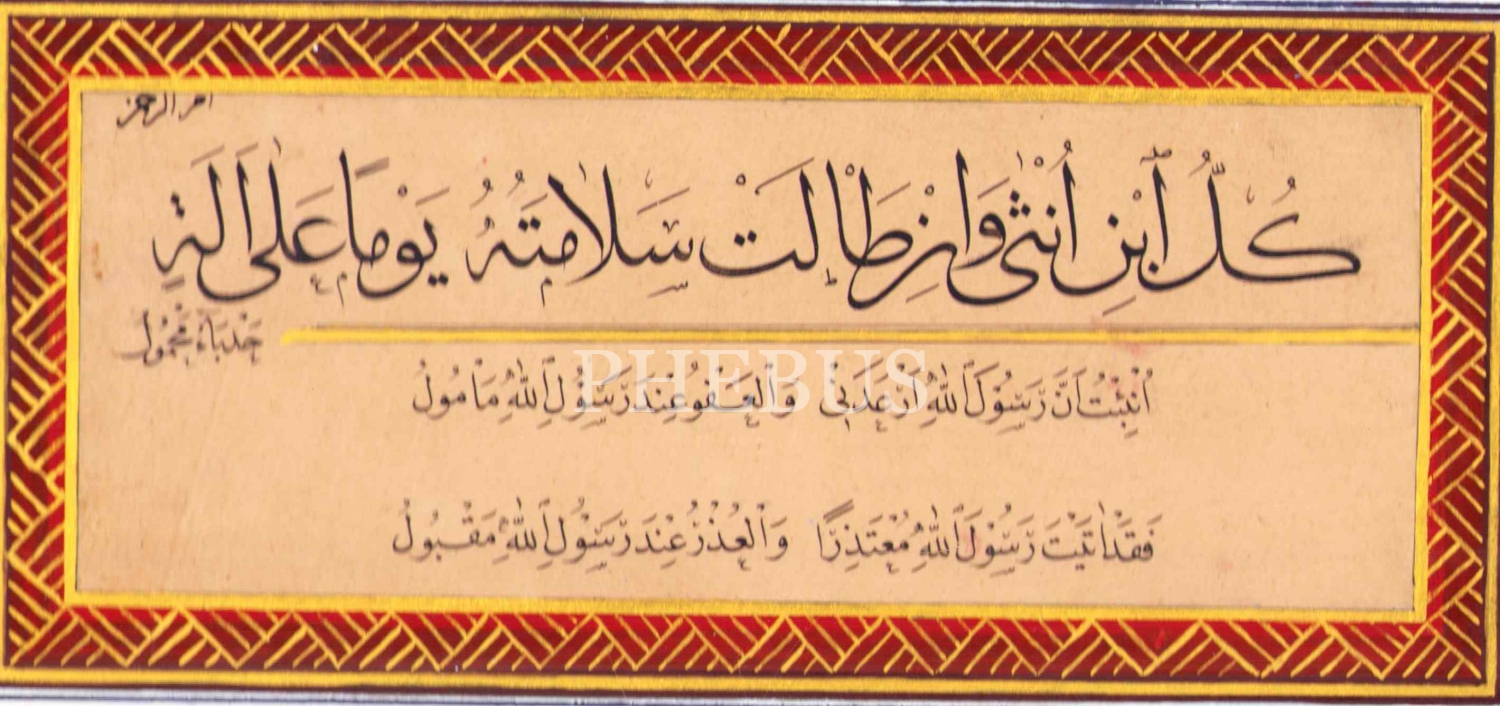 الرحمن
كُلُّ ابْنِ اُنْثٰى وَاِنْ طَالَتْ سَلَامَتُهُ يَوْمًا عَلٰى اٰلَةٍ
حَدْبَاءَ مَحْمُولُ
PHEBUS
اُنْبِئْتُ اَنَّ رَسُوْلَ اللّٰهِ اَوْعَدَنِى وَالْعَفْوُ عِنْدَ رَسُوْلِ اللّٰهِ مَاْمُولُ
فَقَدْ اَتَيْتُ رَسُوْلَ اللّٰهِ مُعْتَذِرًا وَالْعُذْرُ عِنْدَ رَسُوْلِ اللّٰهِ مَقْبُولُ